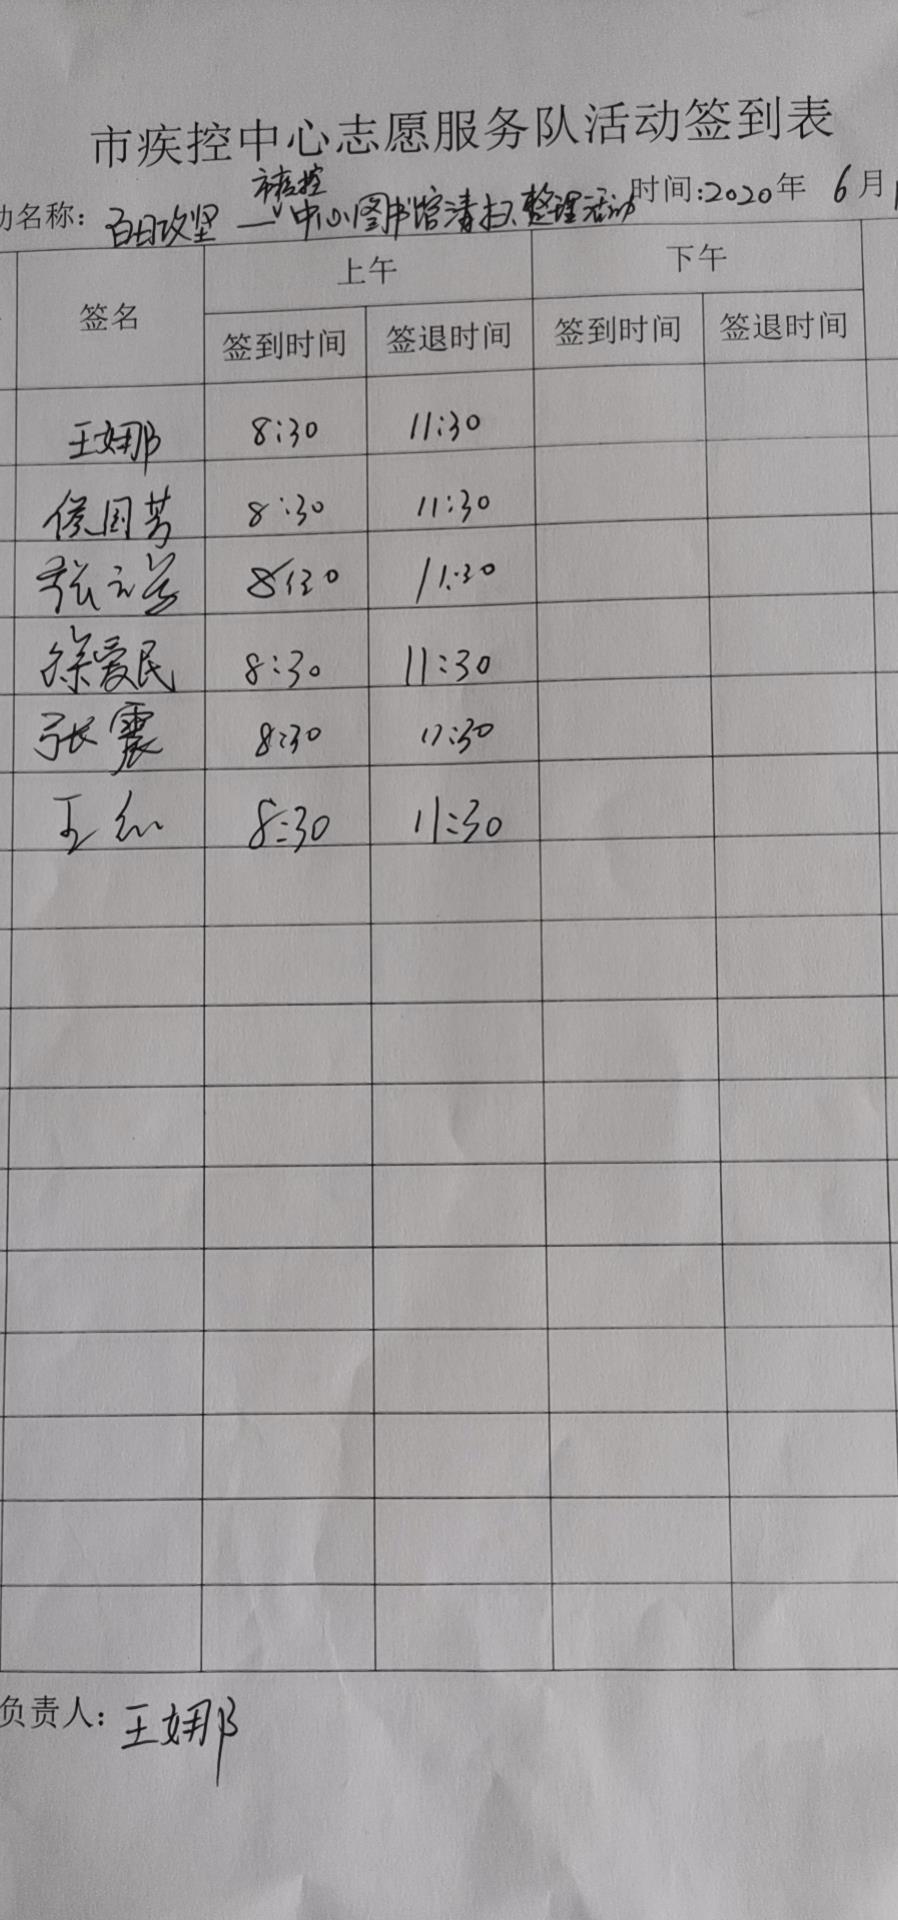 市疾控中心志愿服务队活动签到表
动名称: 百日攻坚——市疾控中心图书馆清扫、整理活动 时间:2020年 6月
签名 上午 下午
签到时间 签退时间 签到时间 签退时间
王娜 8:30 11:30
侯国芳 8:30 11:30
张 8:30 11:30
徐爱民 8:30 11:30
张震 8:30 11:30
王 8:30 11:30
负责人: 王娜